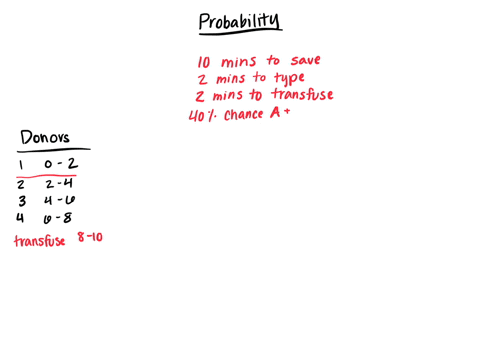 Probability
10 mins to save
2 mins to type
2 mins to transfuse
40% chance A +
Donors
1 0 - 2
2 2 - 4
3 4 - 6
4 6 - 8
transfuse 8 - 10